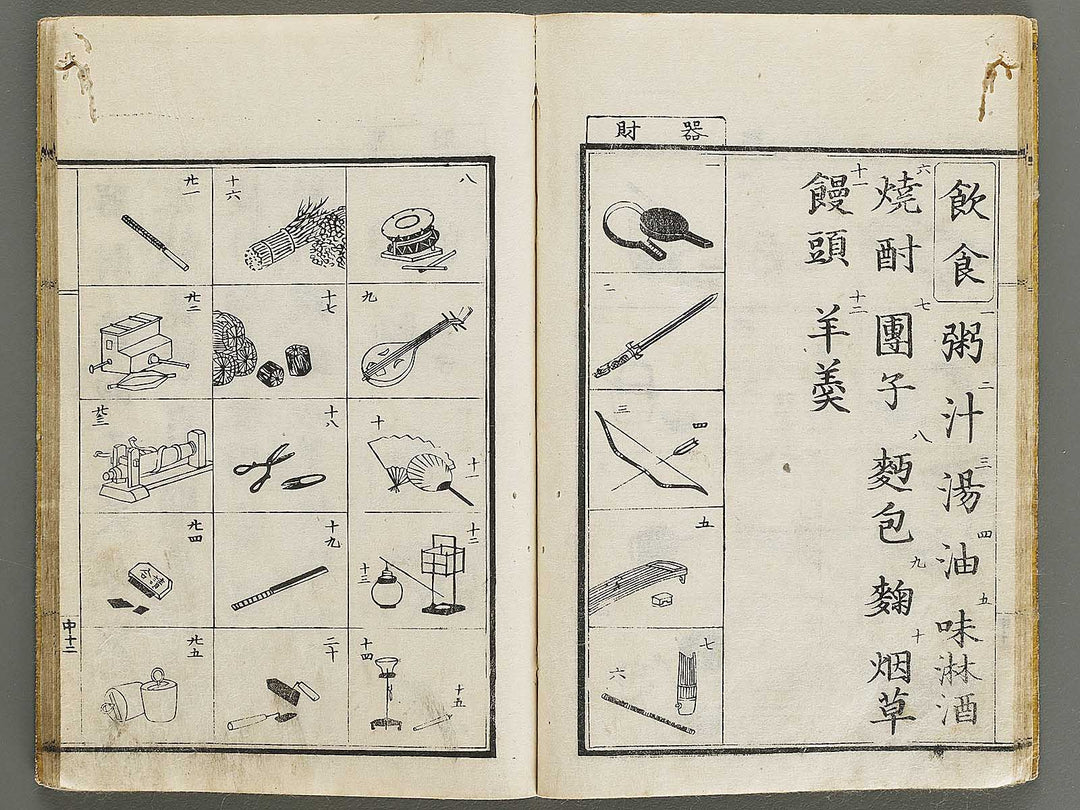 飲食
一 粥 二 汁 三 湯 四 油 五 味淋酒
六 燒酎 七 團子 八 麪包 九 麴 十 烟草
十一 饅頭 十二 羊羹
器財
二
三
四
五
六
七
八
九
十
十一
十二
十三
十四
十五
十六
十七
十八
十九
二十
廿一
廿二
廿三
廿四
請合
廿五
中十二